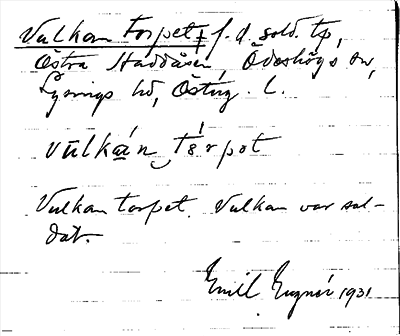 Vulkan torpet ‡ f. d. sold. tp,
Östra Haddåsen, Ödeshögs sn,
Lysings hd, Österg. l.
vulkán tǻrpet
Vulkan torpet. Vulkan var sol-
dat.
Emil 1931